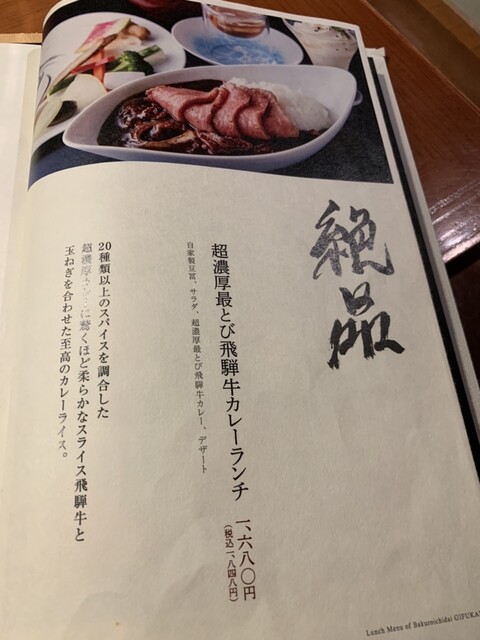 絶品
超濃厚最とび飛騨牛カレーランチ
一、六八〇円
(税込一、八四八円)
自家製豆富、サラダ、超濃厚最とび飛騨牛カレー、デザート
20種類以上のスパイスを調合した
超濃厚カレーに驚くほど柔らかなスライス飛騨牛と
玉ねぎを合わせた至高のカレーライス。
Lunch Menu of Bakuroichidai GIFUKA